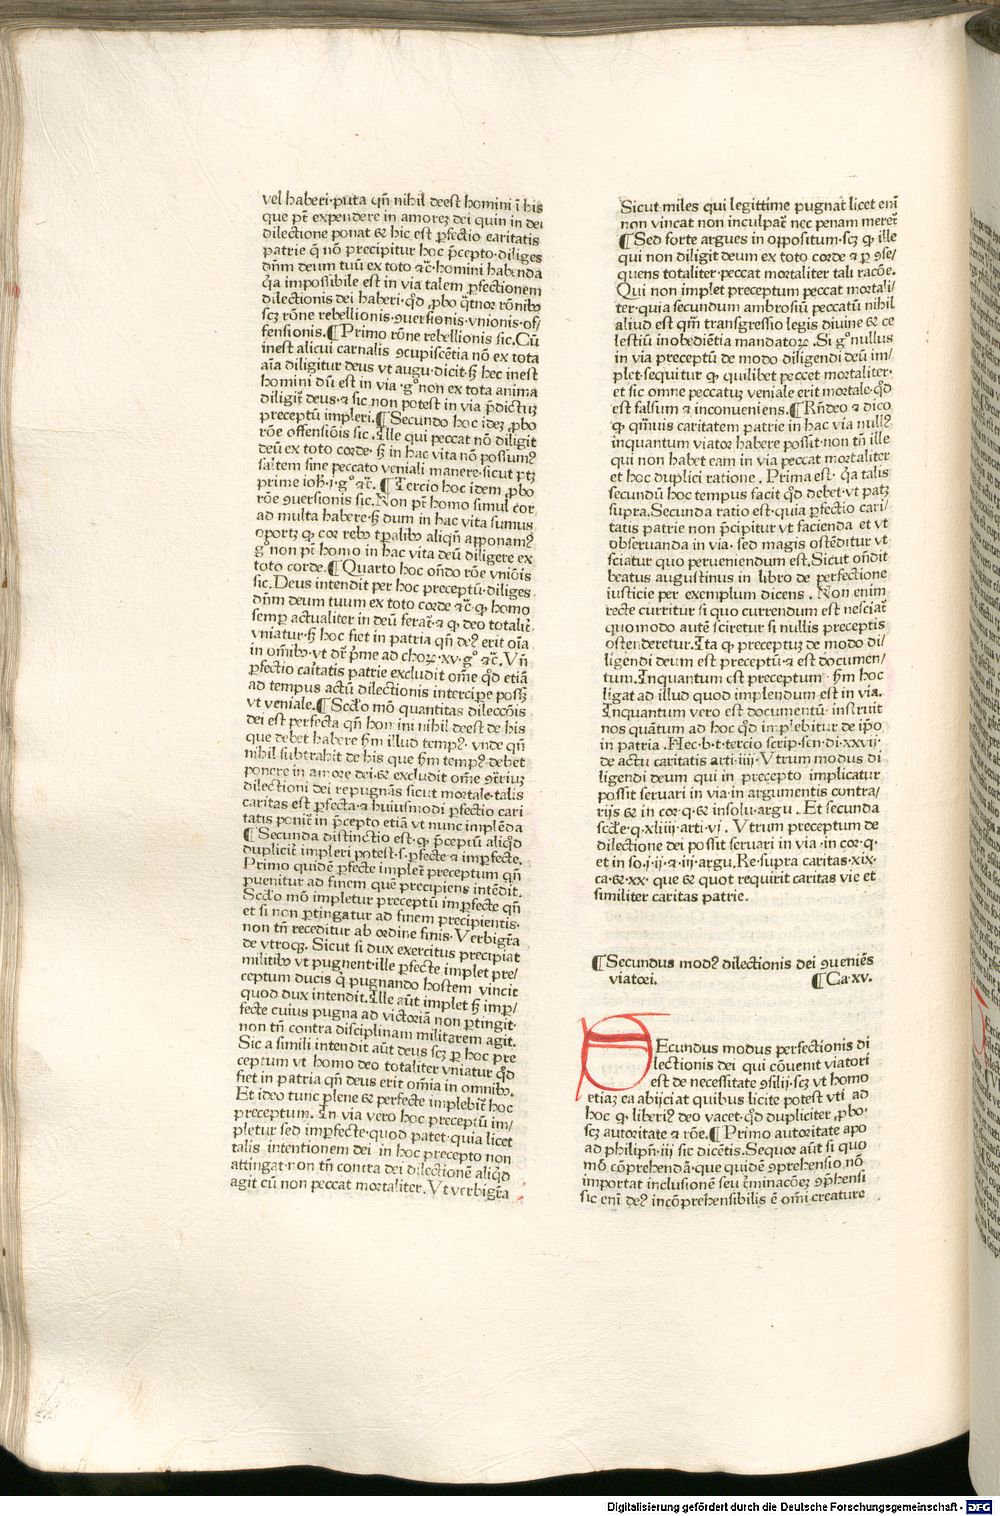 vel haberi·puta qñ nihil deest homini ī his
que pt̄ expendere in amorez dei quin in dei
dilectione ponat & hic est ꝑfectio caritatis
patrie q̄ nō precipitur hoc p̄cepto·diliges
dñm deum tuū ex toto ⁊c̄·homini habenda
q̄a impossibile est in via talem ꝑfectionem
dilectionis dei haberi·qd̄ ꝓbo q̄tuor rōnibꝰ
scꝫ rōne rebellionis·ꝯuersionis·vnionis·of/
fensionis.¶Primo rōne rebellionis sic.Cū
inest alicui carnalis ꝯcupiscētia nō ex tota
aīa diligitur deus vt augu·dicit·ꝫ hec inest
homini dū est in via·gͦ non ex tota anima
diligit̄ deus·⁊ sic non potest in via p̄dictuꝫ
preceptū impleri.¶Secundo hoc idez ꝓbo
rōe offensiōis sic.Ille qui peccat nō diligit
deū ex toto corde·ꝫ in hac vita nō possumꝰ
saltem sine peccato veniali manere·sicut ptꝫ
prime ioh̄·j·gͦ ⁊c̄.¶Tercio hoc idem ꝓbo
rōe ꝯuersionis sic.Non pt̄ homo simul cor
ad multa habere·ꝫ dum in hac vita sumus
oportꝫ ꝙ cor rebꝰ tp̄alibꝰ aliqn̄ apponamꝰ
gͦ non pt̄ homo in hac vita deū diligere ex
toto corde.¶Quarto hoc on̄do rōe vniōis
sic.Deus intendit per hoc preceptū·diliges
dñm deum tuum ex toto corde ⁊c̄·ꝙ homo
semꝑ actualiter in deū ferat̄·⁊ ꝙ deo totalit̄
vniatur·ꝫ hoc fiet in patria qñ deꝰ erit oīa
in oībꝰ·vt dr̄ p̄me ad choꝝ·xv·gͦ ⁊c̄.Vñ
ꝑfectio caritatis patrie excludit om̄e qd̄ etiā
ad tempus actū dilectionis intercipe possꝫ
vt veniale.¶Scd̄o mō quantitas dileccōis
dei est perfecta qñ homini nihil deest de his
que debet habere ẜm illud tempꝰ·vnde qñ
nihil subtrahit de his que ẜm tempꝰ debet
ponere in amore dei·& excludit om̄e ꝯt̄riuꝫ
dilectioni dei repugnās sicut mortale·talis
caritas est ꝑfecta·⁊ huiusmodi ꝑfectio cari
tatis ponit̄ in p̄cepto etiā vt nunc implēda
¶Secunda distinctio est·ꝙ p̄ceptū aliqd̄
dupliciter impleri potest·s·ꝑfecte & imꝑfecte.
Primo quidē ꝑfecte implet̄ preceptum qñ
ꝑuenitur ad finem quē precipiens intēdit.
Scd̄o mō impletur preceptū imꝑfecte qñ
et si non ꝑtingatur ad finem precipientis·
non tn̄ receditur ab ordine finis·Verbigr̄a
de vtroqꝫ. Sicut si dux exercitus precipiat
militibꝰ vt pugnent·ille ꝑfecte implet pre/
ceptum ducis q̄ pugnando hostem vincit
quod dux intendit.Ille aūt implet ꝫ imꝑ/
fecte cuius pugna ad victoriā non ꝑtingit·
non tn̄ contra disciplinam militarem agit.
Sic a simili intendit aūt deus scꝫ ꝑ hoc pre
ceptum vt homo deo totaliter vniatur qd̄
fiet in patria qñ deus erit om̄ia in omnibꝰ.
Et ideo tunc plene & perfecte implebit̄ hoc
preceptum. In via vero hoc preceptū im/
pletur sed imꝑfecte·quod patet·quia licet
talis intentionem dei in hoc precepto non
attingat·non tn̄ contra dei dilectionē aliqd̄
agit cū non peccat mortaliter. Vt verbigr̄a
Sicut miles qui legittime pugnat licet eni
non vincat non inculpat̄ nec penam meret̄
¶Sed forte argues in oppositum·scꝫ ꝙ ille
qui non diligit deum ex toto corde & ꝑ ꝯse/
quens totaliter·peccat mortaliter tali racōe.
Qui non implet preceptum peccat mortali/
ter·quia secundum ambrosiū peccatū nihil
aliud est qm̄ transgressio legis diuine & ce
lestiū inobediētia mandatoꝝ. Si gͦ nullus
in via preceptū de modo diligendi deū im/
plet·sequitur ꝙ quilibet peccet mortaliter·
et sic omne peccatuꝫ veniale erit mortale·qd̄
est falsum ⁊ inconueniens.¶Rn̄deo ⁊ dico
ꝙ qm̄uis caritatem patrie in hac via nullꝰ
inquantum viator habere possit·non tn̄ ille
qui non habet eam in via peccat mortaliter
et hoc duplici ratione. Prima est· q̄a talis
secundū hoc tempus facit qd̄ debet·vt patꝫ
supra.Secunda ratio est·quia ꝑfectio cari/
tatis patrie non p̄cipitur vt facienda et vt
obseruanda in via· sed magis ostēditur vt
sciatur quo perueniendum est.Sicut on̄dit
beatus augustinus in libro de perfectione
iusticie per exemplum dicens. Non enim
recte curritur si quo currendum est nesciat̄
quomodo autē sciretur si nullis preceptis
ostenderetur.Ita ꝙ preceptuꝫ de modo di/
ligendi deum est preceptū·⁊ est documen/
tum.Inquantum est preceptum ẜm hoc
ligat ad illud quod implendum est in via.
Inquantum vero est documentū· instruit
nos quātum ad hoc qd̄ implebitur de ip̄o
in patria.Hec·b·t·tercio scrip·scn·di·xxvij·
de actu caritatis arti·iiij·Vtrum modus di
ligendi deum qui in precepto implicatur
possit seruari in via·in argumentis contra/
rijs & in cor·q·& in solu·argu. Et secunda
scd̄e·q·xliiij·arti·vj. Vtrum preceptum de
dilectione dei possit seruari in via·in cor·q·
et in so·j·ij·⁊·iij·argu.Re·supra caritas·xix·
ca·&·xx· que & quot requirit caritas vie et
similiter caritas patrie.
¶Secundus modꝰ dilectionis dei ꝯueniēs
viatori. ¶Ca·xv.
SEcundus modus perfectionis di
lectionis dei qui cōuenit viatori
est de necessitate ꝯsilij·scꝫ vt homo
etiaꝫ ea abijciat quibus licite potest vti ad
hoc ꝙ liberiꝰ deo vacet·qd̄ dupliciter ꝓbo·
scꝫ autoritate ⁊ rōe.¶Primo autoritate apo
ad philipn̄·iij sic dicētis.Sequor aūt si quo
mō cōprehendā·que quidē ꝯprehensio nō
importat inclusionē seu t̄minacōeꝫ ꝯp̄hensi
sic enī deꝰ incōprehensibilis ē omī creature
Digitalisierung gefördert durch die Deutsche Forschungsgemeinschaft - DFG